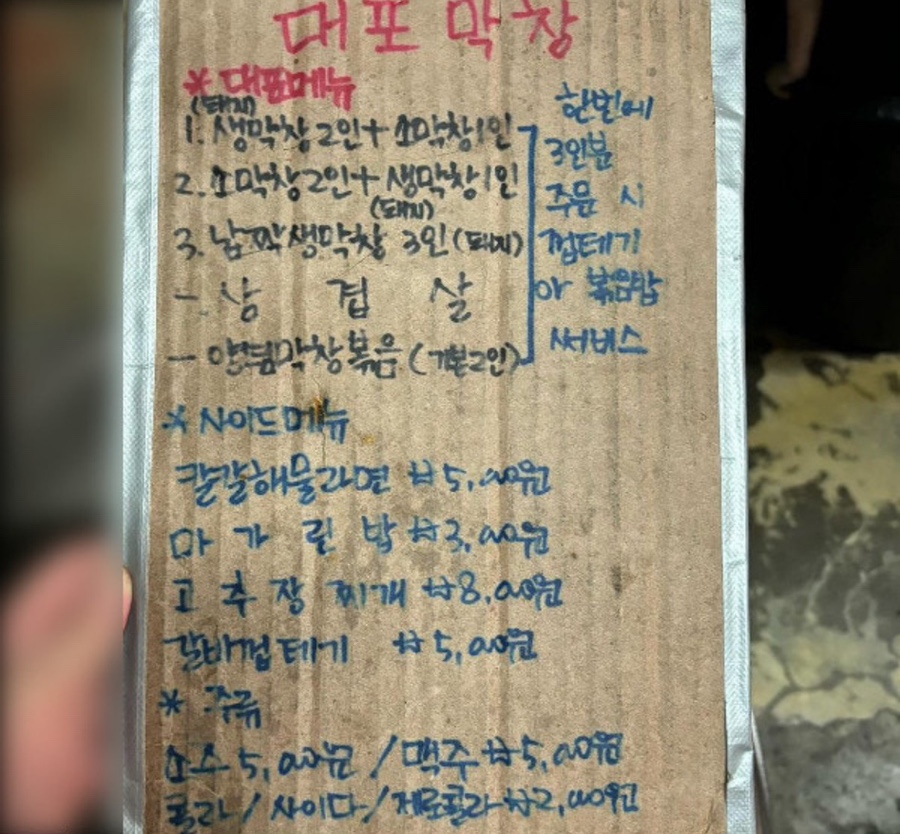 대포막창
* 대표메뉴
(돼지)
1. 생막창2인+소막창1인
2. 소막창2인+생막창1인
(돼지)
3. 납짝생막창 3인(돼지)
- 삼 겹 살
- 양념막창볶음 (기본2인)
한번에
3인분
주문 시
껍데기
or 볶음밥
써비스
* 사이드메뉴
칼칼해물라면 ₩5,000원
마 가 린 밥 ₩3,000원
고 추 장 찌개 ₩8,000원
갈비껍데기 ₩5,000원
* 주류
소주 5,000원 / 맥주 ₩5,000원
콜라 / 사이다 / 제로콜라 ₩2,000원